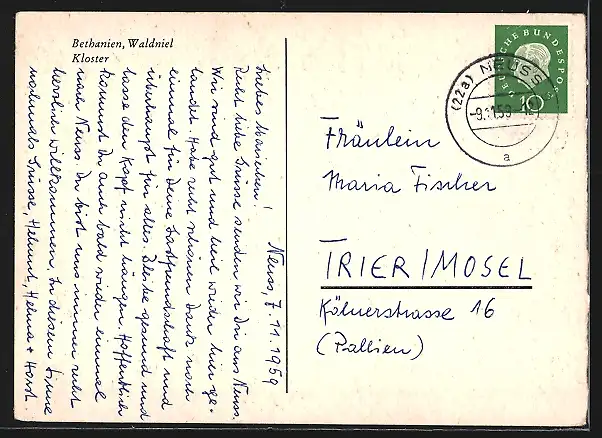 Bethanien, Waldniel
Kloster
Neuss, 7.11.1959
Liebes Mariechen!
Recht liebe Grüsse senden wir Dir aus Neuss.
Wir sind gut und heil wieder hier ge-
landet. Habe recht schönen Dank noch
einmal für Deine Gastfreundschaft und
überhaupt für alles. Bleibe gesund und
lasse den Kopf nicht hängen. Hoffentlich
kommst Du auch bald wieder einmal
nach Neuss. Du bist uns immer recht
herzlich willkommen. In diesem Sinne
nochmals Grüsse, Helmut, Helma + Horst
DEUTSCHE BUNDESPOST
10
(22a) NEUSS
-9.11.59
a
Fräulein
Maria Fischer
TRIER/MOSEL
Kölnerstrasse 16
(Pallien)